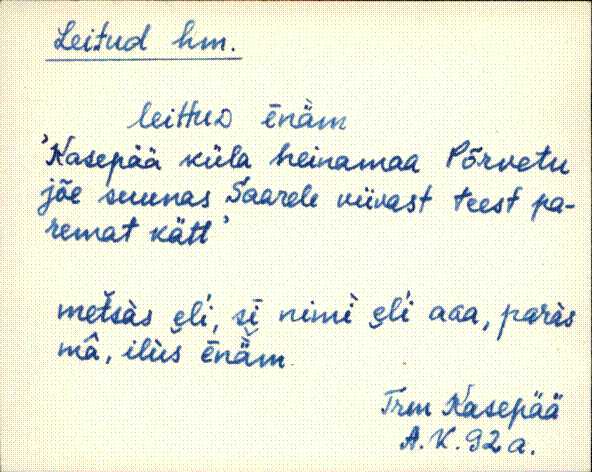 Leitud hm.
leittuD ēnäm
'Kasepää küla heinamaa Põrvetu
jõe suunas Saarele viivast teest pa-
remat kätt'
metsàs ęĺi, sī nimì ęĺi aaa, paràs
mâ, ilùs ēnä̬m
Trm Kasepää
A.K. 92 a.